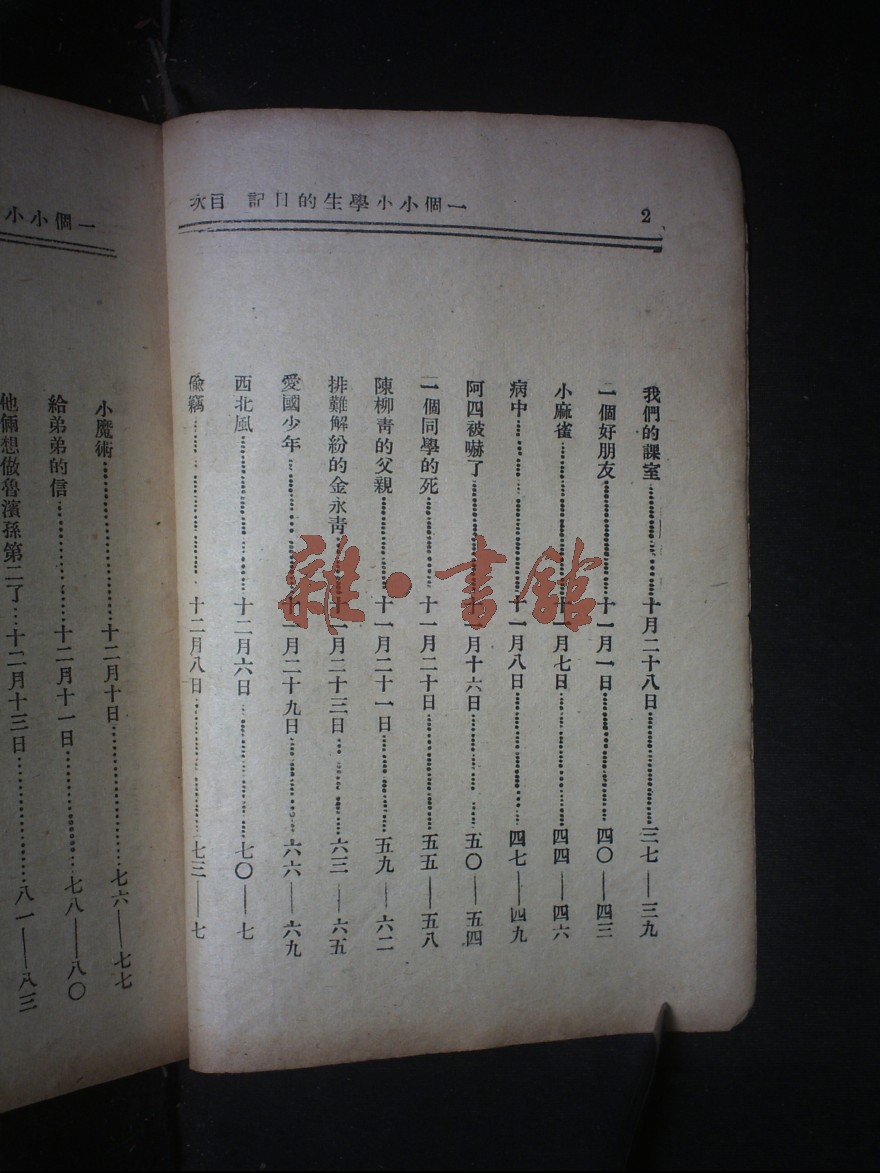 2
一個小小學生的日記 目次
我們的課室……十月二十八日……三七——三九
二個好朋友……十一月一日……四〇——四三
小麻雀……十一月七日……四四——四六
病中……十一月八日……四七——四九
阿四被嚇了……十一月十六日……五〇——五四
二個同學的死……十一月二十日……五五——五八
陳柳青的父親……十一月二十一日……五九——六二
排難解紛的金永青……十一月二十三日……六三——六五
愛國少年……十一月二十九日……六六——六九
西北風……十二月六日……七〇——七
偸竊……十二月八日……七三——七
一個小小
小魔術……十二月十日……七六——七七
給弟弟的信……十二月十一日……七八——八〇
他倆想做魯濱孫第二了…十二月十三日……八一——八三
雜·書館